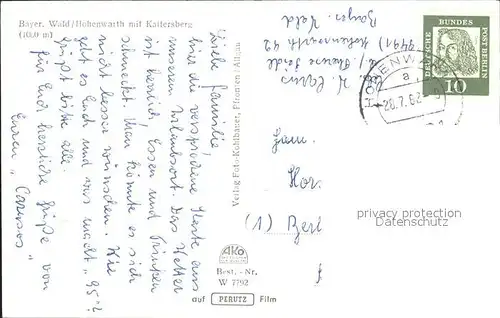 Bayer. Wald/Hohenwarth mit Kaitersberg
Liebe Familie,
hier die versprochene Karte aus
unserem Urlaubsort. Das Wetter
ist herrlich, Essen und Trinken
schmeckt. Man könnte es sich
nicht besser wünschen. Wie
geht es Euch und was macht „95"?
Grüßt bitte alle.
Für Euch herzliche Grüße von
Euren „Carusos"
Verlag Foto-Kohlbauer, Pfronten/Allgäu
AKO
Best.-Nr.
W 7792
auf PERUTZ Film
Hohenwarth 42
Bayer. Wald
DEUTSCHE BUNDESPOST BERLIN
10
HOHENWARTH
a
20.7.62
Fam.
Hor
(1) Berl
privacy protection
Datenschutz